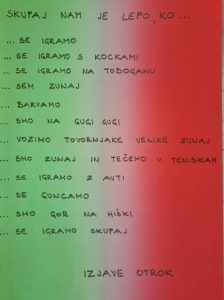 SKUPAJ NAM JE LEPO, KO ...
... SE IGRAMO
... SE IGRAMO S KOCKAMI
... SE IGRAMO NA TOBOGANU
... SEM ZUNAJ
... BARVAMO
... SMO NA GUGI GUGI
... VOZIMO TOVORNJAKE VELIKE ZUNAJ
... SMO ZUNAJ IN TEČEMO V TENISKAH
... SE IGRAMO Z AVTI
... SE GUNCAMO
... SMO GOR NA HIŠKI
... SE IGRAMO SKUPAJ
IZJAVE OTROK